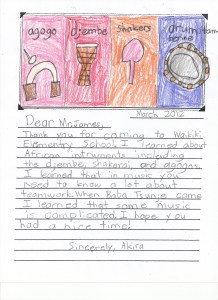 agogo djembe shakers drum/tam
borine
March 2012
Dear Mr. James,
Thank you for coming to Waikiki
Elementary School. I learned about
African instruments including
the djembe, shakers, and agogo.
I learned that in music you
need to know a lot about
teamwork. When Baba Tsunje came
I learned that some music
is complicated. I hope you
had a nice time!
Sincerely, Akira